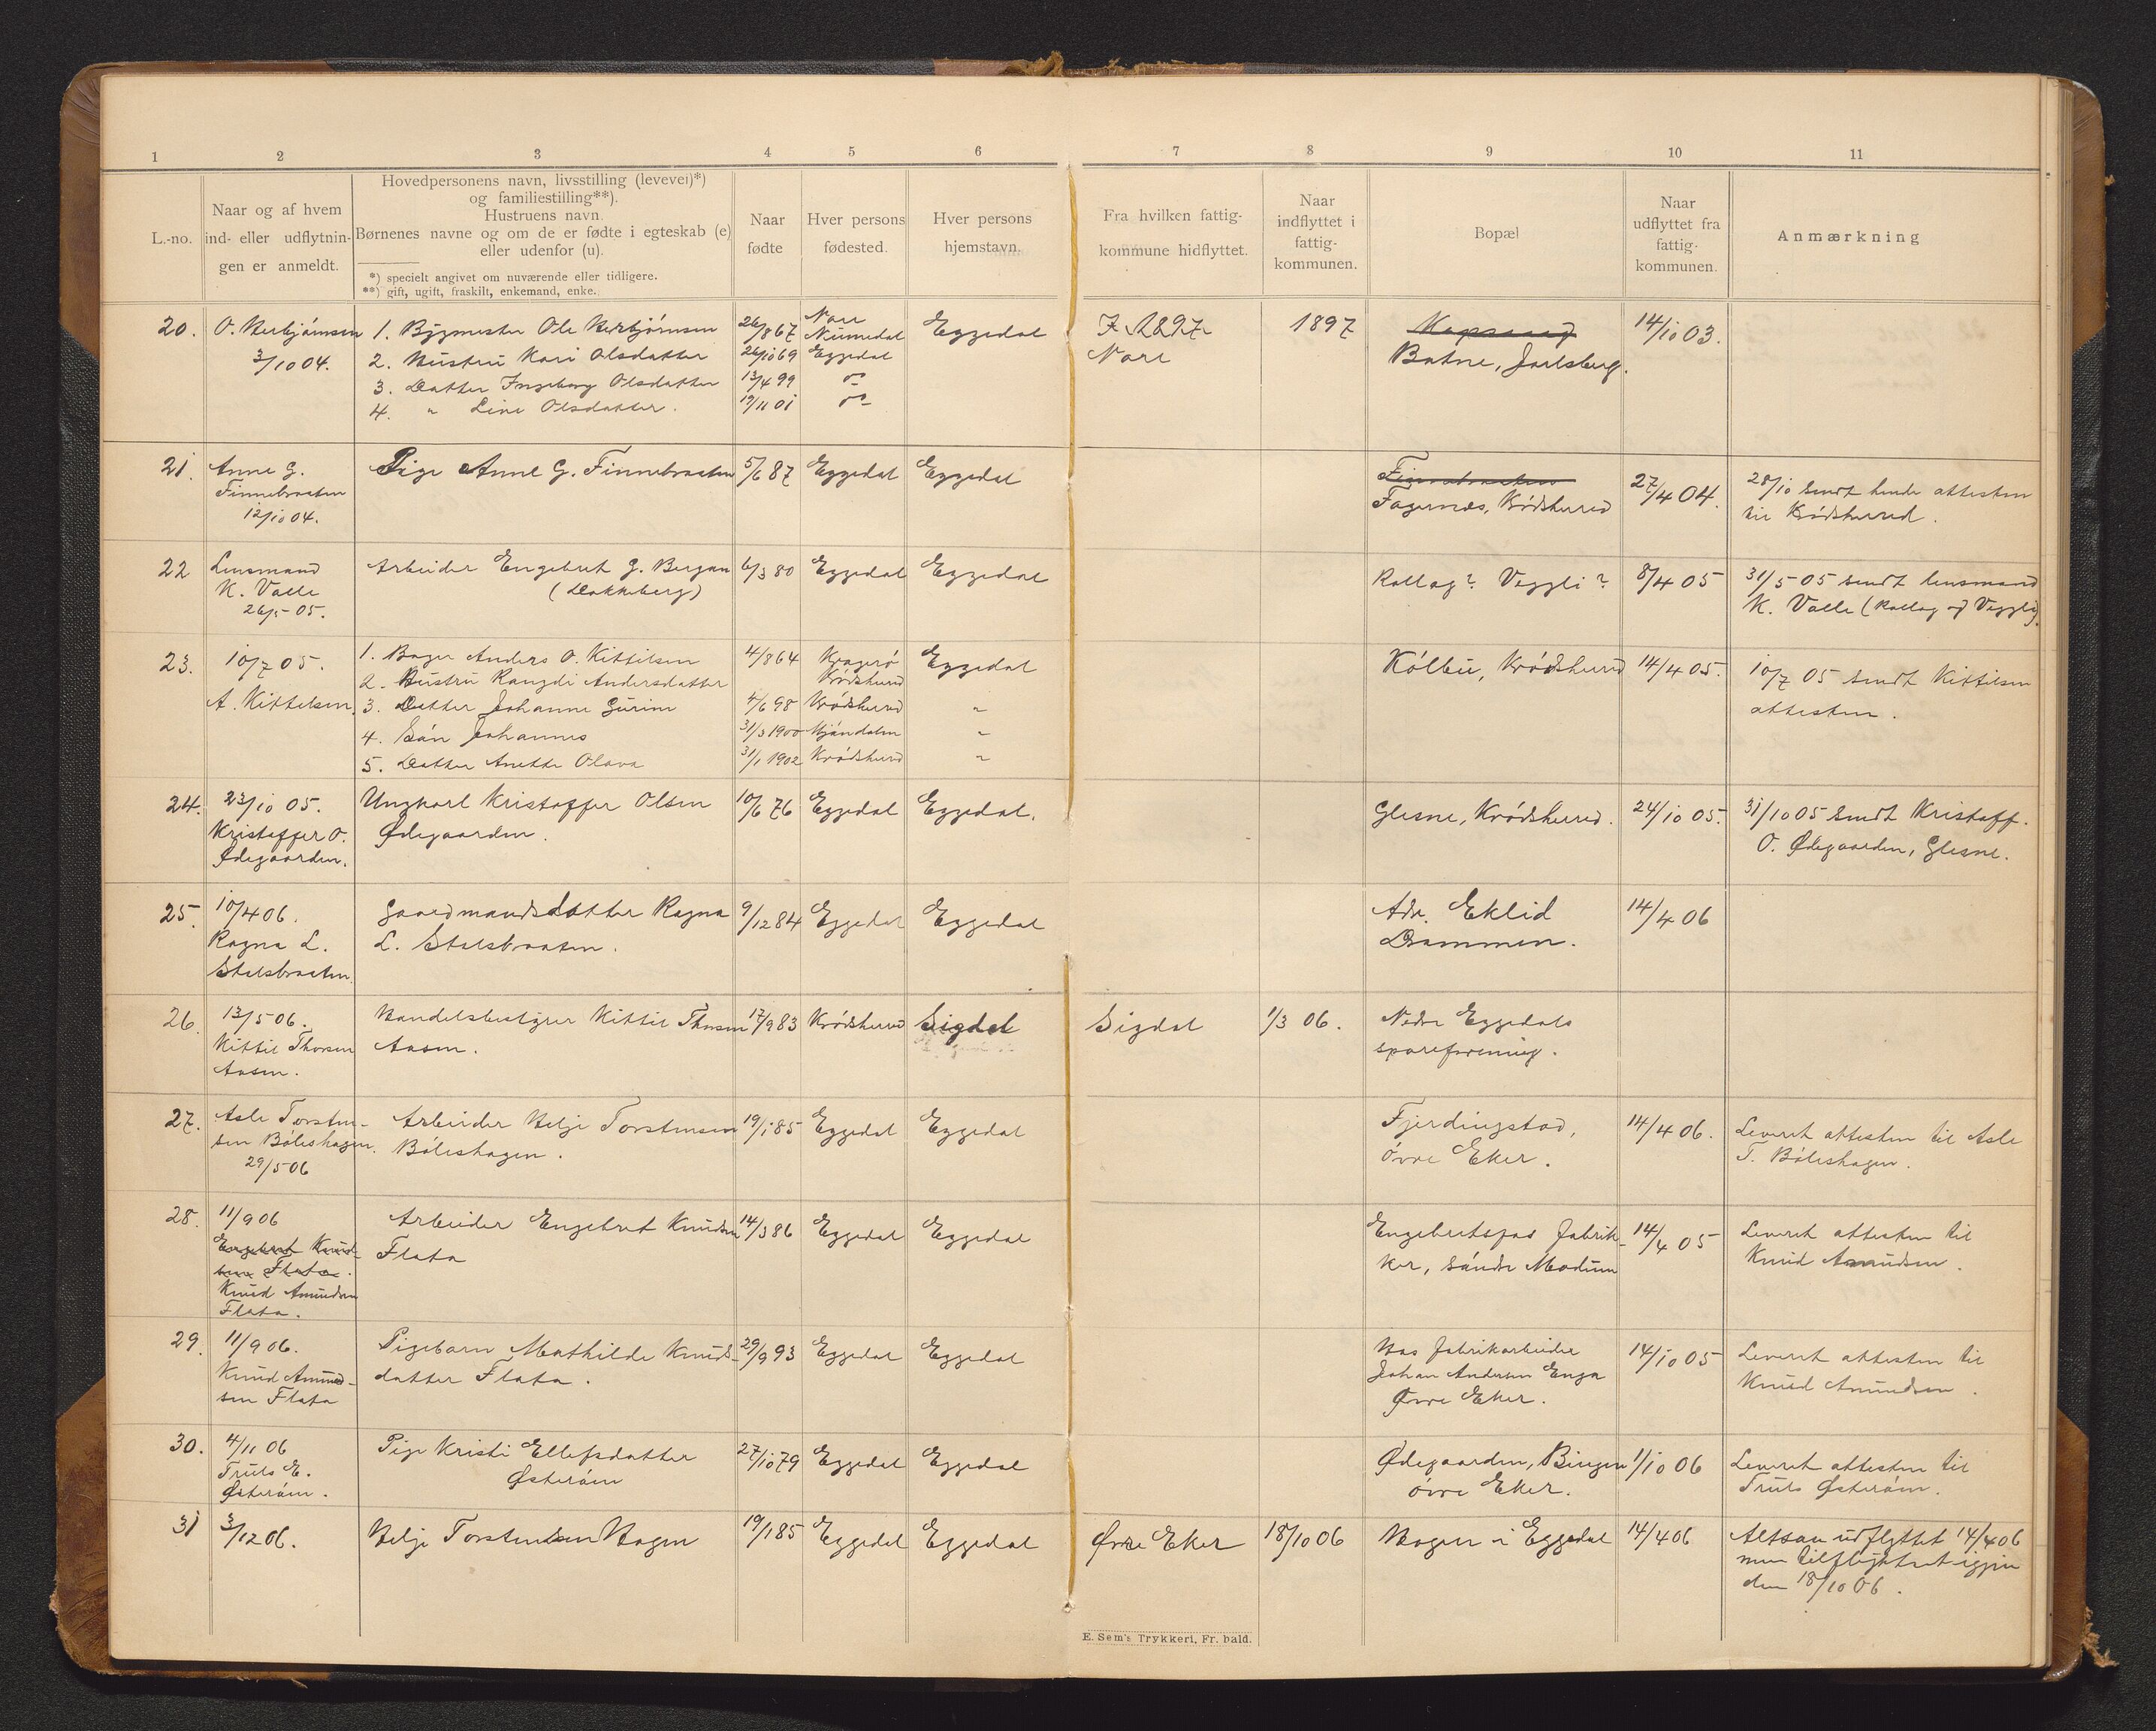 1 2 3 4 5 6 7 8 9 10 11
L.-no.
Naar og af hvem
ind- eller udflytnin-
gen er anmeldt.
Hovedpersonens navn, livsstilling (levevei)*)
og familiestilling**).
Hustruens navn.
Børnenes navne og om de er fødte i egteskab (e)
eller udenfor (u).
*) specielt angivet om nuværende eller tidligere.
**) gift, ugift, fraskilt, enkemand, enke.
Naar
fødte
Hver persons
fødested.
Hver persons
hjemstavn.
Fra hvilken fattig-
kommune hidflyttet.
Naar
indflyttet i
fattig-
kommunen.
Bopæl
Naar
udflyttet fra
fattig-
kommunen.
Anmærkning
20.
O. Herbjörnsen
3/10 04.
1. Bygmester Ole Herbjörnsen
2. Hustru Kari Olsdatter
3. Datter Ingeborg Olsdatter
4. " Line Olsdatter.
26/8 67
26/10 69
13/4 99
19/11 01
Nore
Numedal
Eggedal
Eggedal
I 1897
Nore
1897
Botne, Jarlsberg.
14/10 03.
21.
Anne G.
Finnebraaten
12/10 04.
Pige Anne G. Finnebraaten
5/6 87
Eggedal
Eggedal
Finnebraaten
Fagernæs, Krödsherred
27/4 04.
28/10 sendt hende attesten
til Krödsherred.
22
Lensmand
K. Valle
26/5 05.
Arbeider Engebret G. Bergan
(Dokkeberg)
6/3 80
Eggedal
Eggedal
Rollag? Veggli?
8/4 05
31/5 05 sendt lensmand
K. Valle (Rollag og Veggli).
23.
10/7 05.
A. Kittelsen.
1. Bager Anders O. Kittilsen
2. Hustru Rangdi Andersdatter
3. Datter Johanne Gurine
4. Sön Johannes
5. Datter Anette Olava
4/8 64
4/6 98
31/3 1900
31/1 1902
Kragerö
Krödsherred
Krödsherred
Mjöndalen
Krödsherred
Eggedal
"
"
"
Kölbu, Krödsherred
14/4 05.
10/7 05 sendt Kittilsen
attesten.
24.
23/10 05.
Kristoffer O.
Ødegaarden.
Ungkarl Kristoffer Olsen
Ødegaarden.
10/6 76
Eggedal
Eggedal.
Glesne, Krödsherred.
24/10 05.
31/10 05 sendt Kristoff.
O. Ødegaarden, Glesne.
25.
10/4 06.
Ragna L.
Stulsbraaten.
Gaardmandsdatter Ragna
L. Stulsbraaten.
9/12 84
Eggedal
Eggedal
Adr. Eklid
Drammen.
14/4 06
26.
13/5 06.
Kittil Thorsen
Aasen.
Handelsbestyrer Kittil Thorsen
Aasen.
17/9 83
Krödsherred
Sigdal
Sigdal
1/3 06.
Nedre Eggedals
spareforening.
27.
Asle Torsten-
sen Böleshagen.
29/5 06
Arbeider Helje Torstensen
Böleshagen.
19/1 85
Eggedal
Eggedal
Fjerdingstad,
övre Eker.
14/4 06.
Leveret attesten til Asle
T. Böleshagen.
28.
11/9 06
Engebret Knud-
sen Flata.
Knud Amundsen
Flata.
Arbeider Engebret Knudsen
Flata
14/3 86
Eggedal
Eggedal
Engebretsfos fabrik-
ker, söndre Modum
14/4 05
Leveret attesten til
Knud Amundsen.
29.
11/9 06.
Knud Amund-
sen Flata
Pigebarn Mathilde Knuds-
datter Flata.
29/9 93
Eggedal
Eggedal
Hos fabrikarbeider
Johan Andersen Enga
Øvre Eker.
14/10 05
Leveret attesten til
Knud Amundsen.
30.
4/11 06
Truls E.
Østeröm.
Pige Kristi Ellefsdatter
Østeröm
27/10 79
Eggedal
Eggedal
Ødegaarden, Bingen
övre Eker.
1/10 06
Leveret attesten til
Truls Østeröm.
31
3/12 06.
Helje Torstensen Hagen
19/1 85
Eggedal
Eggedal
Øvre Eker
18/10 06
Hagen i Eggedal
14/4 06
Altsaa udflyttet 14/4 06
men tilflyttet igjen
den 18/10 06.
E. Sem's Trykkeri, Fr. hald.